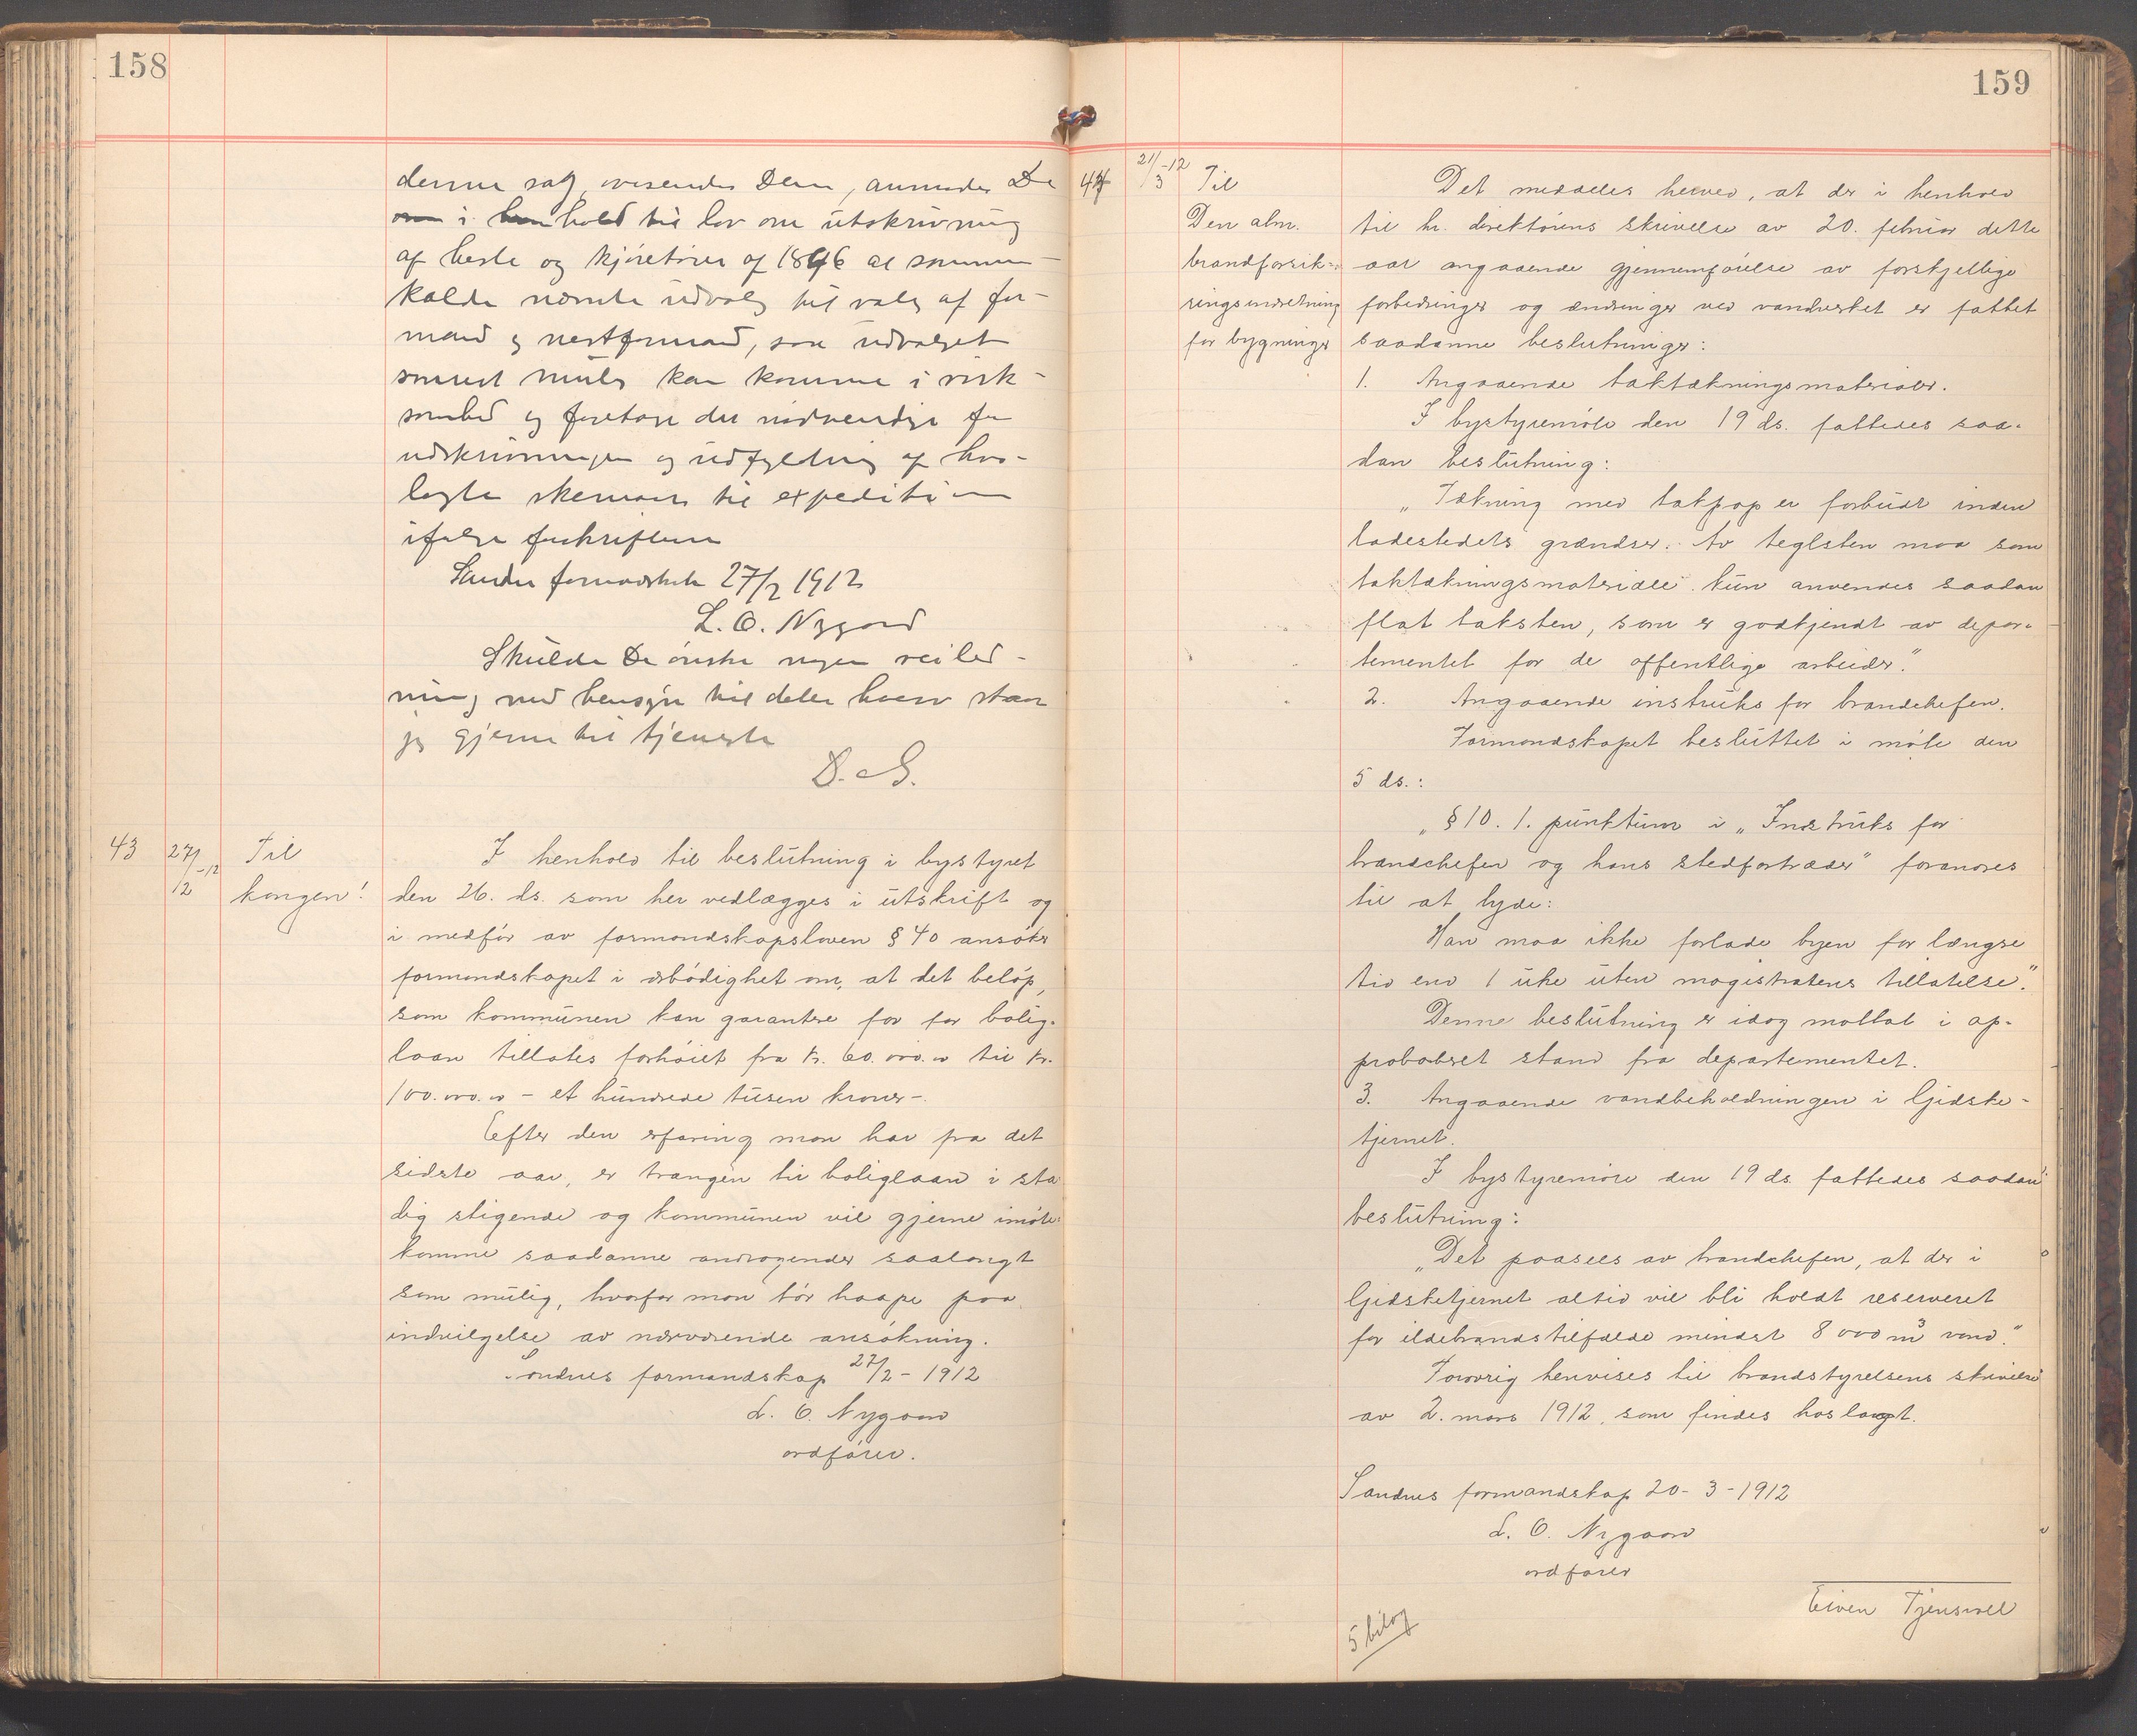 158
denne sag, ovesendes Dem, anmodes De
om i henhold til lov om utskrivning
af heste og kjøretøier af 1896 at sammen-
kalde nævnte udvalg til valg af for-
mand og nestformand, saa udvalget
snarest mulig kan komme i virk-
somhed og foretage det nødvendige for
udskrivningen og udfyldning af hos-
lagte skemaer til expedition
ifølge forskriftene
Sandnes formandskab 27/2 1912
L. O. Nygaard
Skulde De ønske nogen veiled-
ning med hensyn til dette hverv staar
jeg gjerne til tjeneste
D. S.
43 27/12 -12 Til
kongen!
I henhold til beslutning i bystyret
den 26. ds. som her vedlægges i utskrift og
i medfør av formandskapsloven § 40 ansøker
formandskapet i ærbødighet om, at det beløp,
som kommunen kan garantere for for bolig-
laan tillates forhøiet fra kr. 60.000.00 til kr.
100.000.00 - et hundrede tusen kroner -.
Efter den erfaring man har fra det
sidste aar, er trangen til boliglaan i sta
dig stigende og kommunen vil gjerne imøte-
komme saadanne andragender saalangt
som mulig, hvorfor man tør haape paa
indvilgelse av nærværende ansøkning.
Sandnes formandskap 27/2 - 1912
L. O. Nygaard
ordfører.
159
44 21/3 -12 Til
Den alm.
brandforsik-
ringsindretning
for bygninger
Det meddeles herved, at der i henhold
til hr. direktørens skrivelse av 20. februar dette
aar angaaende gjennemførelse av forskjellige
forbedringer og ændringer ved vandverket er fattet
saadanne beslutninger:
1. Angaaende taktækningsmaterialer.
I bystyremøte den 19 ds. fattedes saa-
dan beslutning:
„Tækning med takpap er forbudt inden
ladestedets grændser. Av teglsten maa som
taktækningsmateriale kun anvendes saadan
flat taksten, som er godkjendt av depar-
tementet for de offentlige arbeider."
2. Angaaende instruks for brandchefen.
Formandskapet besluttet i møte den
5 ds.:
„§ 10. 1. punktum i „Instruks for
brandchefen og hans stedfortræder" forandres
til at lyde:
Han maa ikke forlade byen for længre
tid end 1 uke uten magistratens tillatelse."
Denne beslutning er idag mottat i ap-
proberet stand fra departementet.
3. Angaaende vandbeholdningen i Gjedske-
tjernet.
I bystyremøte den 19 ds. fattedes saadan
beslutning:
„Det paasees av brandchefen, at der i
Gjedsketjernet altid vil bli holdt reserveret
for ildebrandstilfælde mindst 8000 m³ vand."
Forøvrig henvises til brandstyrelsens skrivelse
av 2. mars 1912, som findes hoslagt.
Sandnes formandskap 20 - 3 - 1912
L. O. Nygaard
ordfører
Eiven Tjensvoll
5 bilag